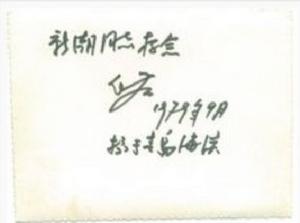 新潮同志存念
1979年9月
摄于青岛海滨